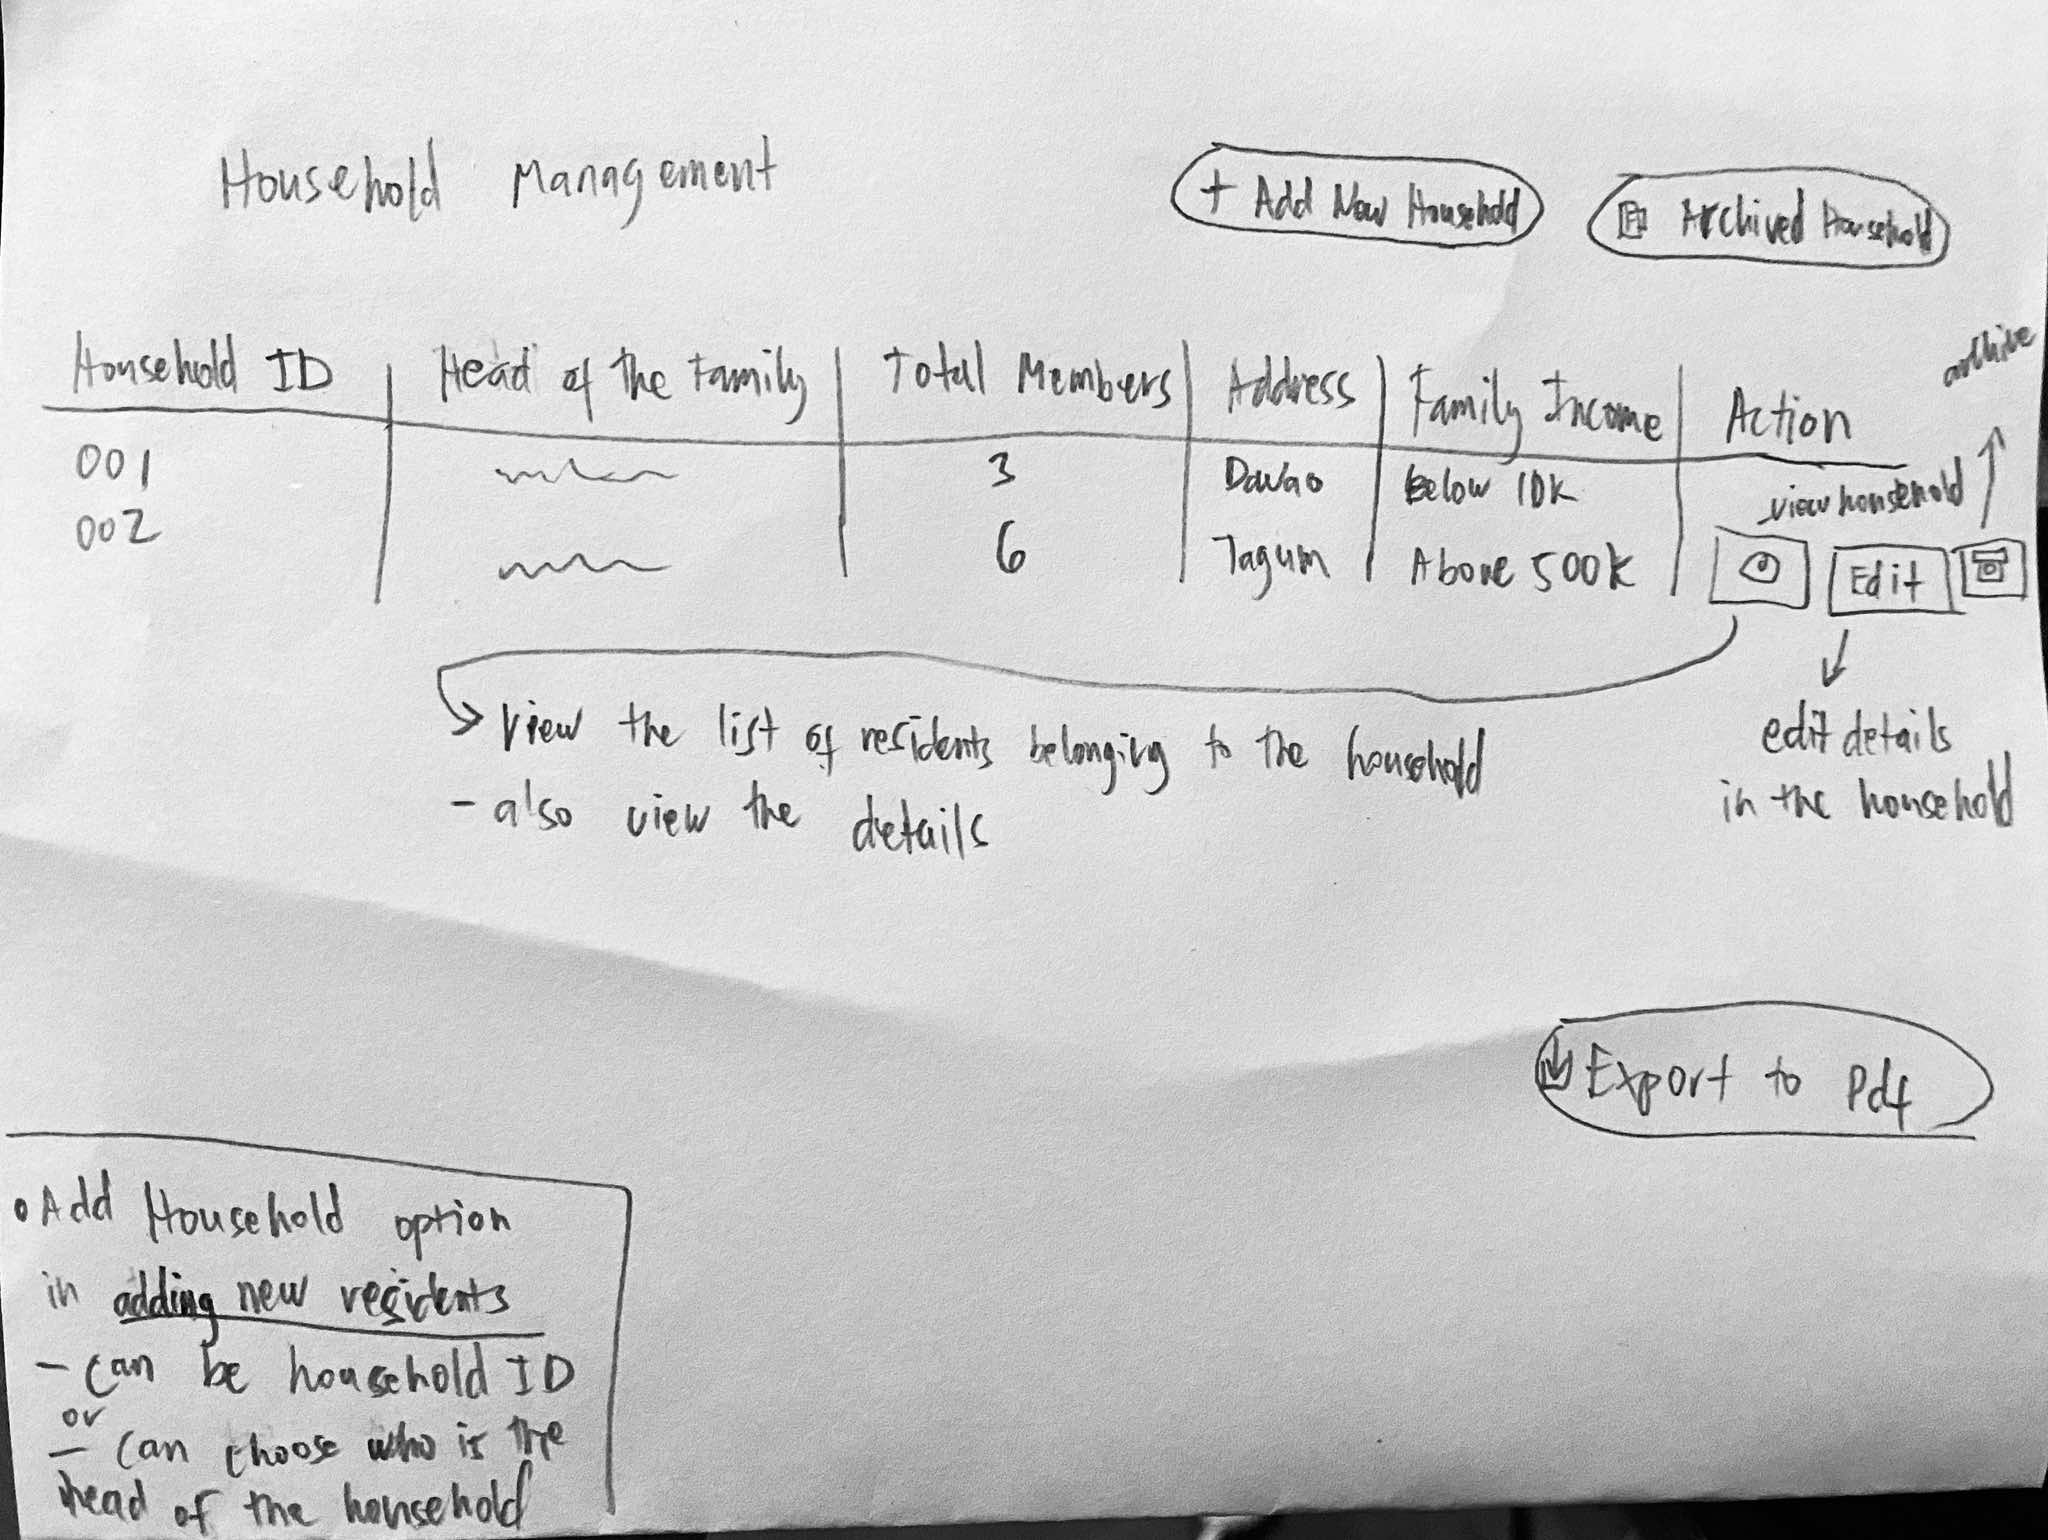 Household Management
+ Add New Household
Archived Household
Household ID | Head of the Family | Total Members | Address | Family Income | Action
archive
001 3 Davao Below 10k
view household
002 6 Tagum Above 500k Edit
→ view the list of residents belonging to the household
- also view the details
edit details
in the household
Export to Pdf
• Add Household option
in adding new residents
- can be household ID
or
- can choose who is the
head of the household